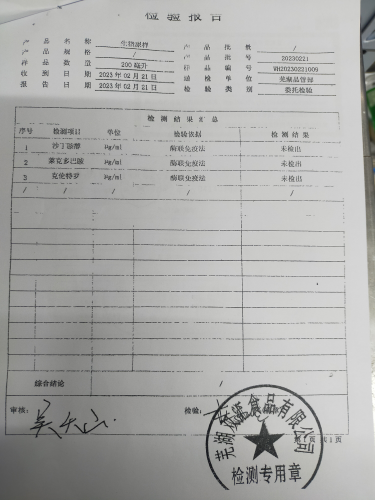 检验报告
产品名称 生猪尿样 产品批数 /
产品规格 / 产品批号 20230221
样品数量 200毫升 样品编号 WH20230221009
收到日期 2023年02月21日 送检单位
报告日期 2023年02月21日 检验类别 委托检验
检测结果汇总
序号 检测项目 单位 检验依据 检测结果
1 沙丁胺醇 μg/ml 酶联免疫法 未检出
2 莱克多巴胺 μg/ml 酶联免疫法 未检出
3 克伦特罗 μg/ml 酶联免疫法 未检出
/ / / / /
综合结论 /
审核: 检验:
第1页 共1页
芜湖 食品有限公司
检测专用章